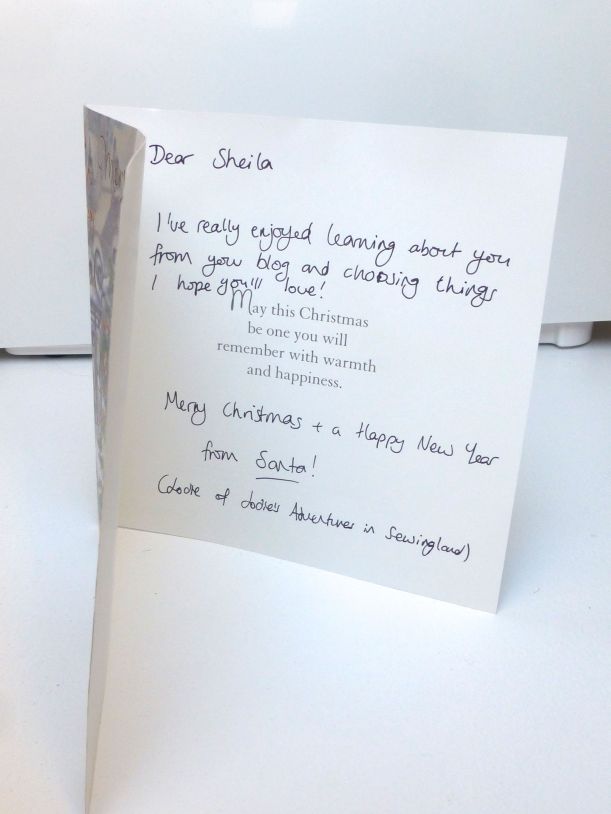 Dear Sheila
I've really enjoyed learning about you
from your blog and choosing things
I hope you'll love!
May this Christmas
be one you will
remember with warmth
and happiness.
Merry Christmas + a Happy New Year
from Santa!
of Adventures in Sewingland)